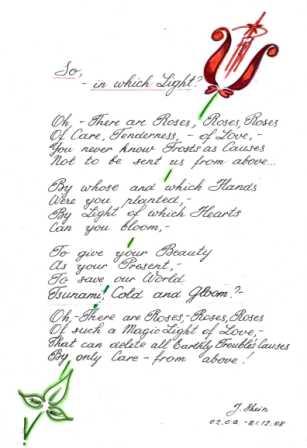 So,
- in which Light?
Oh, - There are Roses, Roses, Roses
Of Care, Tenderness, - of Love, -
You never know Frosts as Causes
Not to be sent us from above...
By whose and which Hands
Were you planted, -
By Light of which Hearts
Can you bloom, -
To give your Beauty
As your Present, -
To save our World
Tsunami, Cold and Gloom? -
Oh, - There are Roses, - Roses, Roses
Of such a Magic Light of Love, -
That can delete all Earthly Troubles Causes
By only Care - from above!